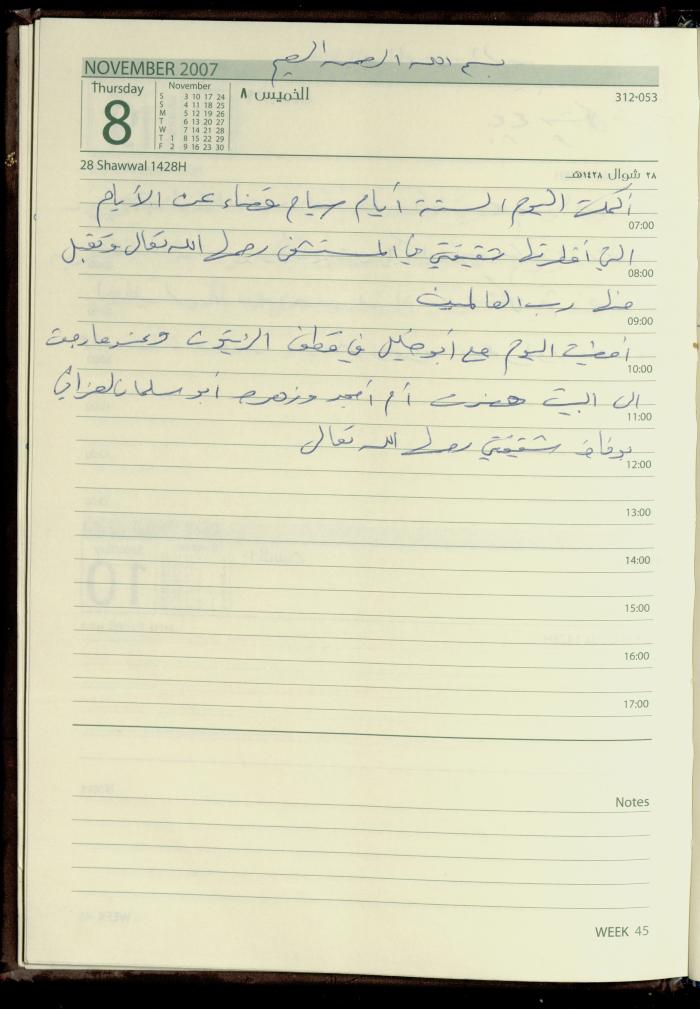 بسم الله الرحمن الرحيم
NOVEMBER 2007
Thursday
8
November
S 3 10 17 24
S 4 11 18 25
M 5 12 19 26
T 6 13 20 27
W 7 14 21 28
T 1 8 15 22 29
F 2 9 16 23 30
الخميس ٨
312-053
28 Shawwal 1428H
٢٨ شوال ١٤٢٨هـ
أكملت اليوم الستة أيام صيام قضاء عن الأيام
07:00
التي أفطرتها شقيقتي في المستشفى رحمها الله تعالى وتقبل
08:00
منها رب العالمين
09:00
أمضيت اليوم مع أبو خليل في قطف الزيتون وعندما رجعت
10:00
الى البيت حضرت أم أمجد وزهره أبو سلمان لعزائي
11:00
بوفاة شقيقتي رحمها الله تعالى
12:00
13:00
14:00
15:00
16:00
17:00
Notes
WEEK 45